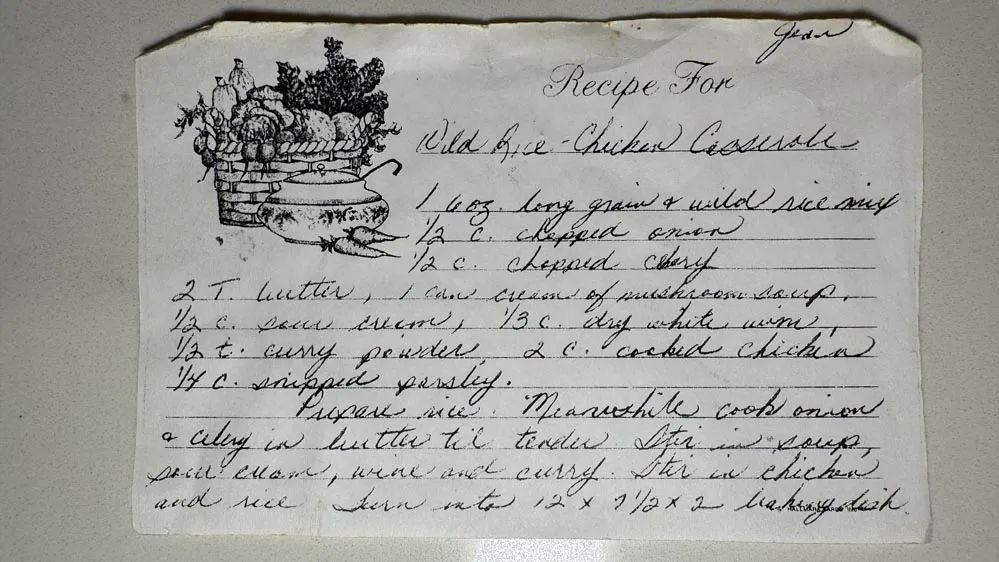 Jean
Recipe For
Wild Rice-Chicken Casserole
1 6 oz. long grain & wild rice mix
1/2 c. chopped onion
1/2 c. chopped celery
2 T. butter, 1 can cream of mushroom soup,
1/2 c. sour cream, 1/3 c. dry white wine,
1/2 t. curry powder, 2 c. cooked chicken
1/4 c. snipped parsley.
Prepare rice. Meanwhile cook onion
& celery in butter til tender Stir in soup,
sour cream, wine and curry. Stir in chicken
and rice Turn into 12 x 7 1/2 x 2 baking dish.